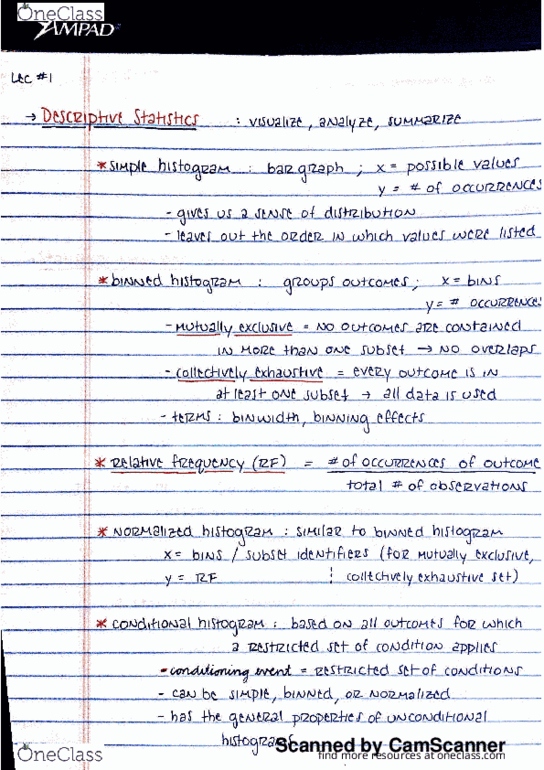 OneClass
AMPAD
LEC #1
→ Descriptive Statistics : visualize, analyze, summarize
* simple histogram : bar graph ; x = possible values
y = # of occurrences
- gives us a sense of distribution
- leaves out the order in which values were listed
* binned histogram : groups outcomes ; x = bins
y = # occurrences
- mutually exclusive = no outcomes are contained
in more than one subset → no overlaps
- collectively exhaustive = every outcome is in
at least one subset → all data is used
- terms : binwidth, binning effects
* relative frequency (RF) = # of occurrences of outcome
total # of observations
* normalized histogram : similar to binned histogram
x = bins / subset identifiers (for mutually exclusive,
y = RF collectively exhaustive set)
* conditional histogram : based on all outcomes for which
a restricted set of condition applies
- conditioning event = restricted set of conditions
- can be simple, binned, or normalized
- has the general properties of unconditional
histograms
Scanned by CamScanner
OneClass
find more resources at oneclass.com